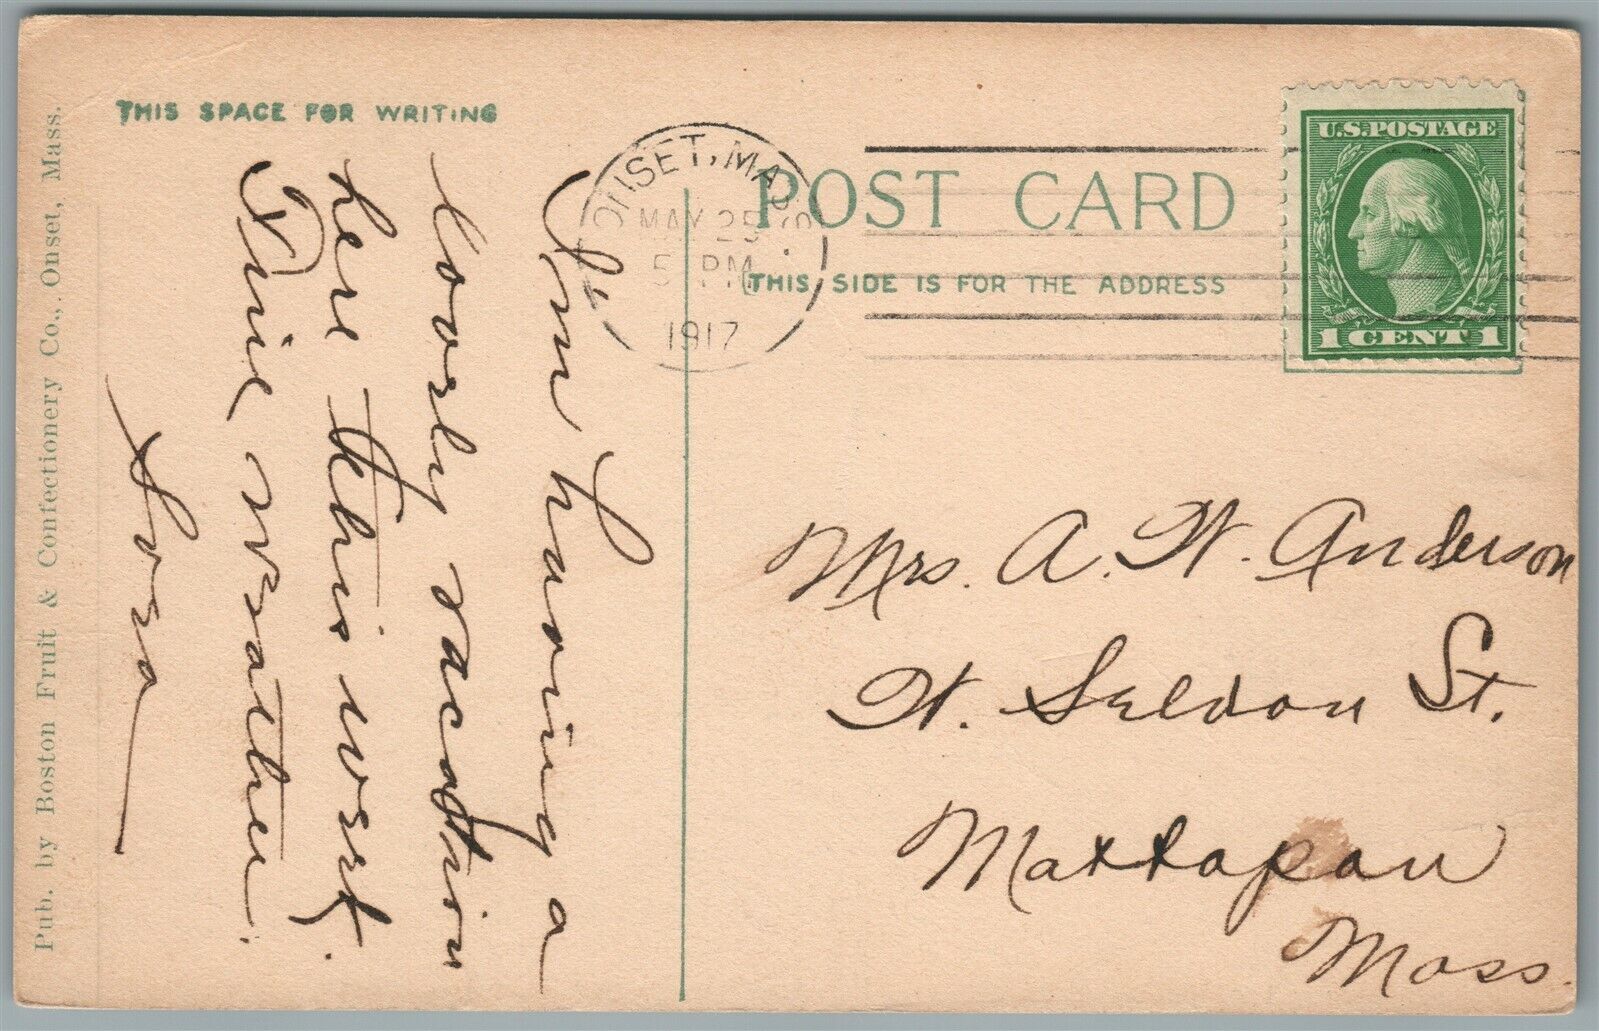 THIS SPACE FOR WRITING
Am having a
lovely vacation
here this work.
Fine weather.
Pub. by Boston Fruit & Confectionery Co., Onset, Mass.
ONSET, MASS.
MAY 25
5 PM
1917
POST CARD
THIS SIDE IS FOR THE ADDRESS
U.S. POSTAGE
1 CENT 1
Mrs. A. W. Anderson
W. Seldon St.
Mattapan
Mass.